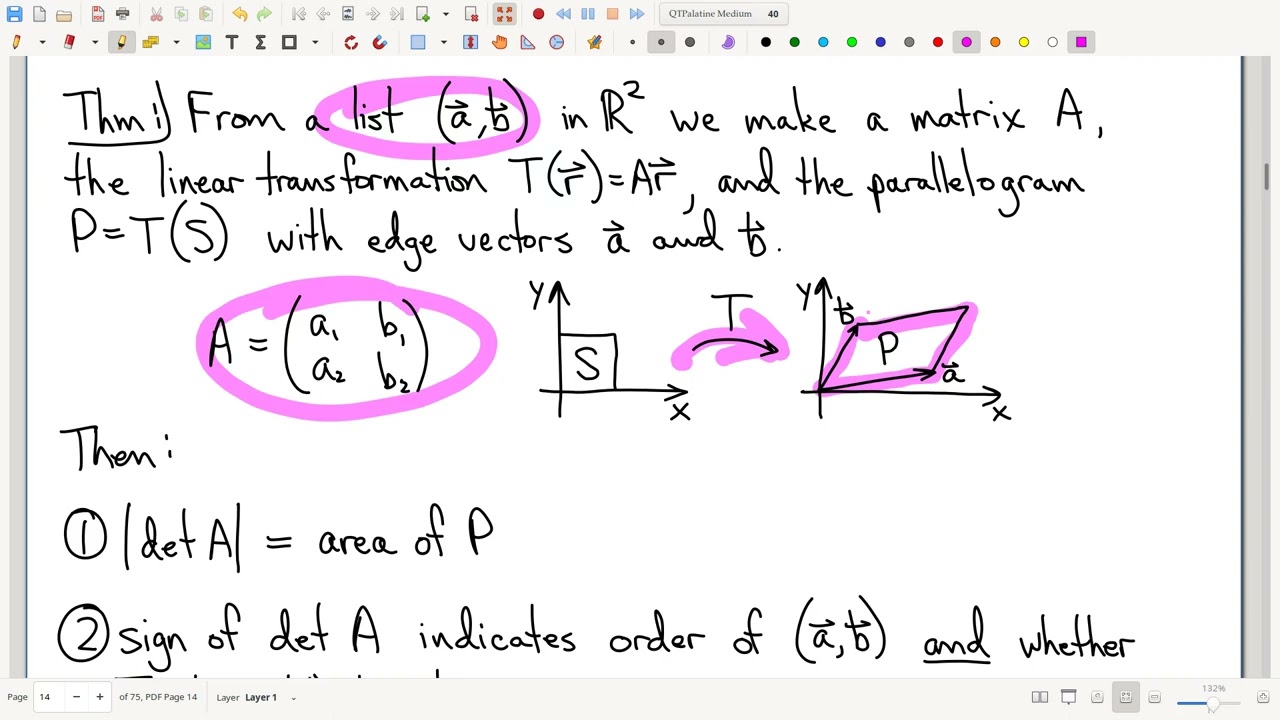 QTPalatine Medium 40
Thm: From a list (a⃗, b⃗) in ℝ² we make a matrix A,
the linear transformation T(r⃗)=Ar⃗, and the parallelogram
P=T(S) with edge vectors a⃗ and b⃗.
A = (a₁ b₁
a₂ b₂)
y S x
T
y b⃗ P a⃗ x
Then:
① |det A| = area of P
② sign of det A indicates order of (a⃗, b⃗) and whether
Page 14 of 75, PDF Page 14 Layer Layer 1 132%